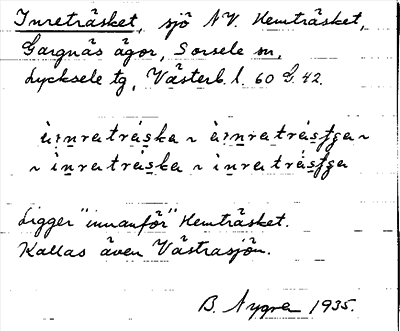 Inreträsket, sjö N.V. Hemträsket,
Gargnäs ägor, Sorsele sn,
Lycksele tg, Västerb. l. 60 G. 42.
ı̀nratráska ~ ~
~ ı̀nratráska ~
Ligger "innanför" Hemträsket.
Kallas även Västrasjön.
B. Nygren 1935.